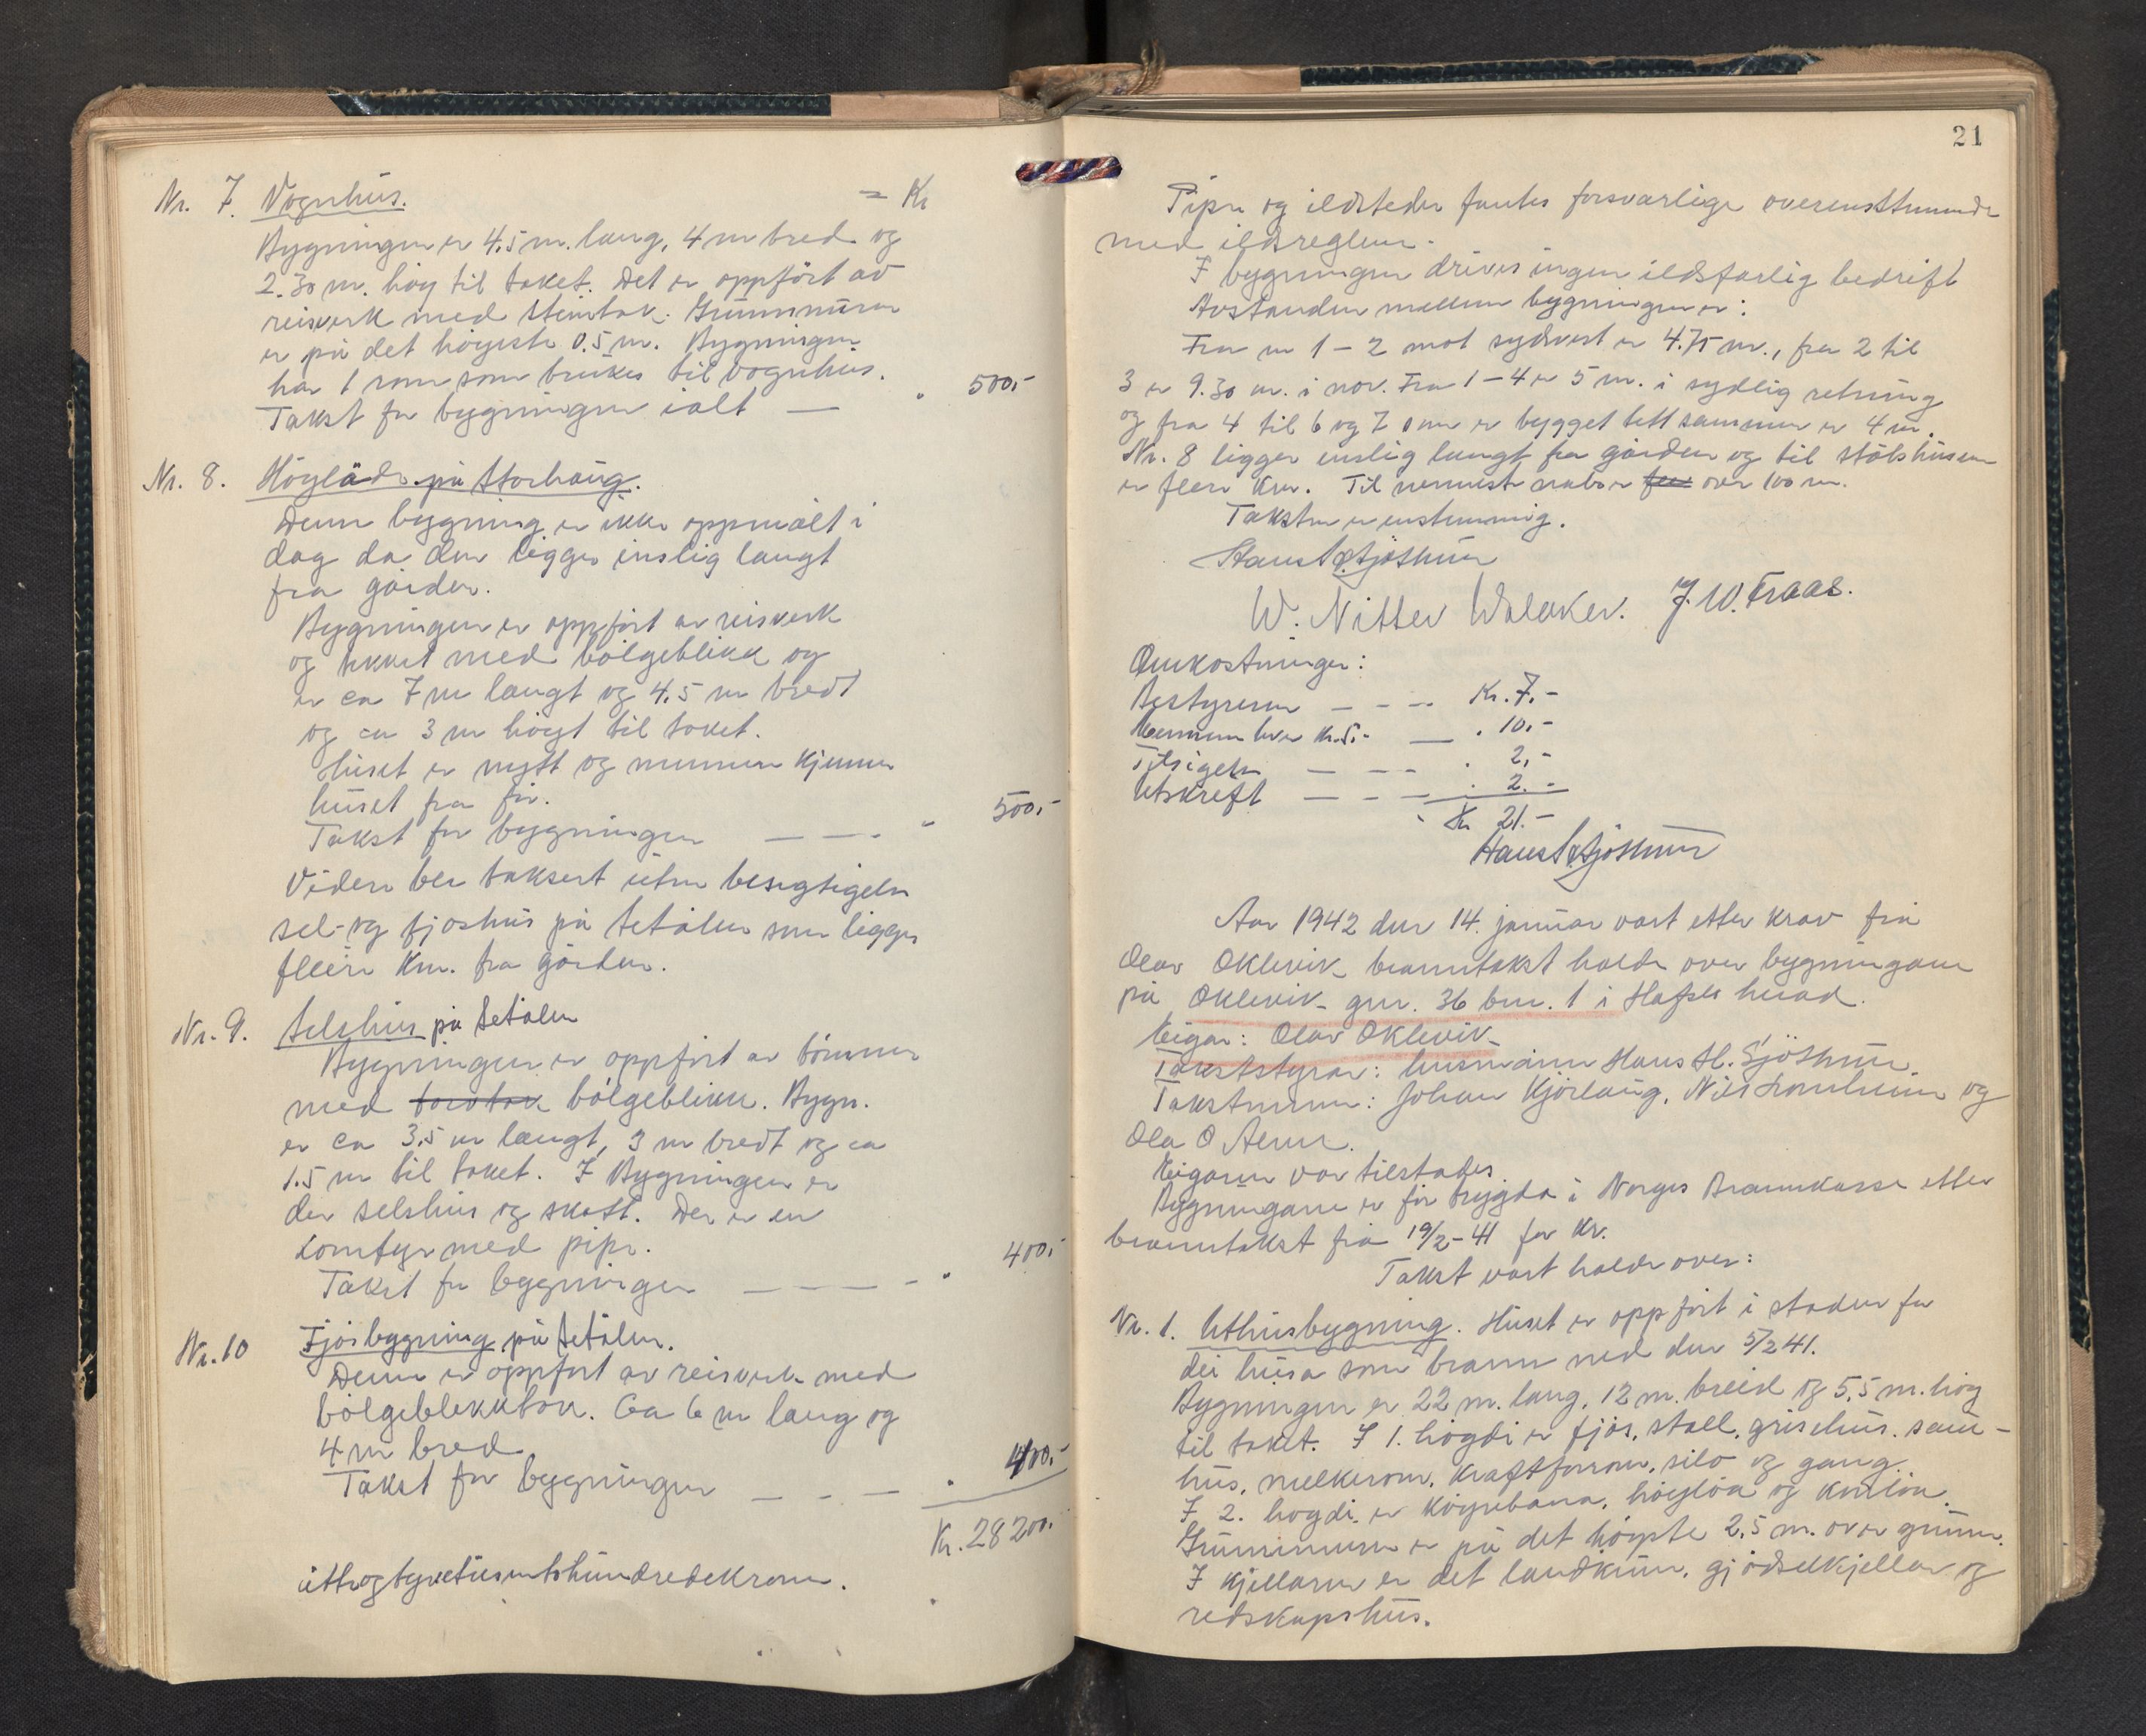 Nr. 7. Vognhus. = Kr
Bygningen er 4.5 m. lang, 4 m bred og
2.30 m. høy til taket. Det er oppført av
reisverk med steintak. Grunnmuren
er på det høyeste 0.5 m. Bygningen
har 1 rom som brukes til vognhus.
Takst for bygningen ialt — " 500,-
Nr. 8. Høylåde på Storhaug.
Denne bygning er ikke oppmålt i
dag da den ligger enslig langt
fra gården.
Bygningen er oppført av reisverk
og tekket med bølgeblikk og
er ca 7 m langt og 4.5 m bredt
og ca 3 m høyt til taket.
Huset er nytt og mennene kjenner
huset fra før.
Takst for bygningen — — - " 500,-
Videre ble taksert uten besigtigelse
sel- og fjøshus på Setålen som ligger
flere km. fra gården.
Nr. 9. Selshus på Setålen
Bygningen er oppført av tømmer
med torvtak bølgeblikk. Bygn.
er ca 3.5 m langt, 3 m bredt og ca
1.5 m til taket. I Bygningen er
der selshus og skott. Der er en
komfyr med pipe.
Takst for bygningen — — — - " 400,-
Nr. 10 Fjøsbygning på Setålen.
Denne er oppført av reisverk med
bølgeblikktak. Ca 6 m lang og
4 m bred
Takst for bygningen — - — " 400,-
Kr. 28200,-
åtteogtyvetusentohundredekroner.
21
Pipe og ildsteder fantes forsvarlige overensstemmende
med ildsreglene.
I bygningen drives ingen ildsfarlig bedrift
Avstanden mellem bygningene er:
Fra nr 1 – 2 mot sydvest er 4.75 m., fra 2 til
3 er 9.30 m. i nov. Fra 1 – 4 er 5 m. i sydlig retning
og fra 4 til 6 og 7 som er bygget tett sammen er 4 m.
Nr. 8 ligger enslig langt fra gården og til stølshusene
er flere km. Til nermeste nabo er over 100 m.
Taksten er enstemmig.
Hans H Sjøthun
W. Nitter Walaker. J. W. Fraas.
Omkostninger:
Bestyreren — - - - Kr. 7.-
Mennene hver kr. 5.- — " 10.-
Tilsigelse — - - - " 2,-
Utskrift — - - — " 2.-
Kr 21.-
Hans H Sjøthun
Aar 1942 den 14. januar vart etter krav frå
Olav Oklevik branntakst halde over bygningane
på Oklevik gnr. 36 bnr. 1 i Hafslo herad.
Eigar: Olav Oklevik
Takststyrar: lensmann Hans H. Sjøthun.
Takstmenn: Johan Kjørlaug, Nils Lomheim og
Ola O Alme.
Eigaren var tilstades.
Bygningane er før trygda i Norges Brannkasse etter
branntakst frå 19/2-41 for kr.
Takst vart halde over:
Nr. 1. Uthusbygning. Huset er oppført i staden for
dei husa som brann ned den 5/2 41.
Bygningen er 22 m. lang, 12 m. breid og 5,5 m. høg
til taket. I 1. høgdi er fjøs, stall, grisehus. saue-
hus, melkerom, kraftforrom, silo og gang.
I 2. høgdi er køyrebana, høyløa og kornløa.
Grunnmuren er på det høgste 2,5 m. over grunnen.
I kjellaren er det landkum, gjødselkjellar og
redskapshus.